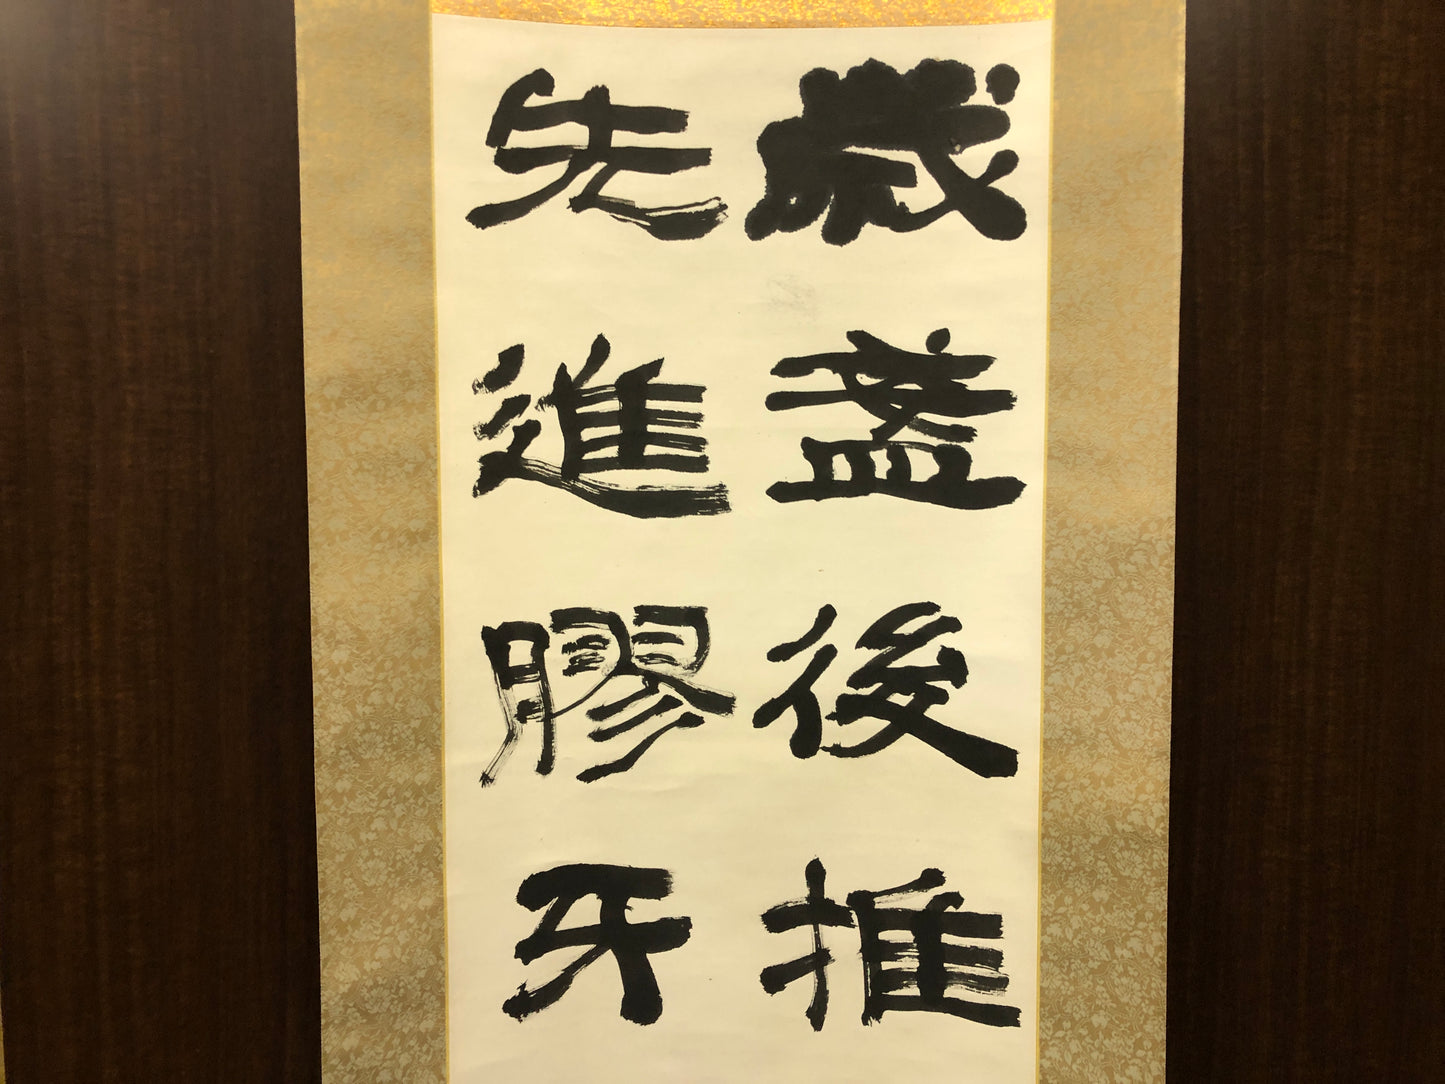 歲盞後推
先進膠牙